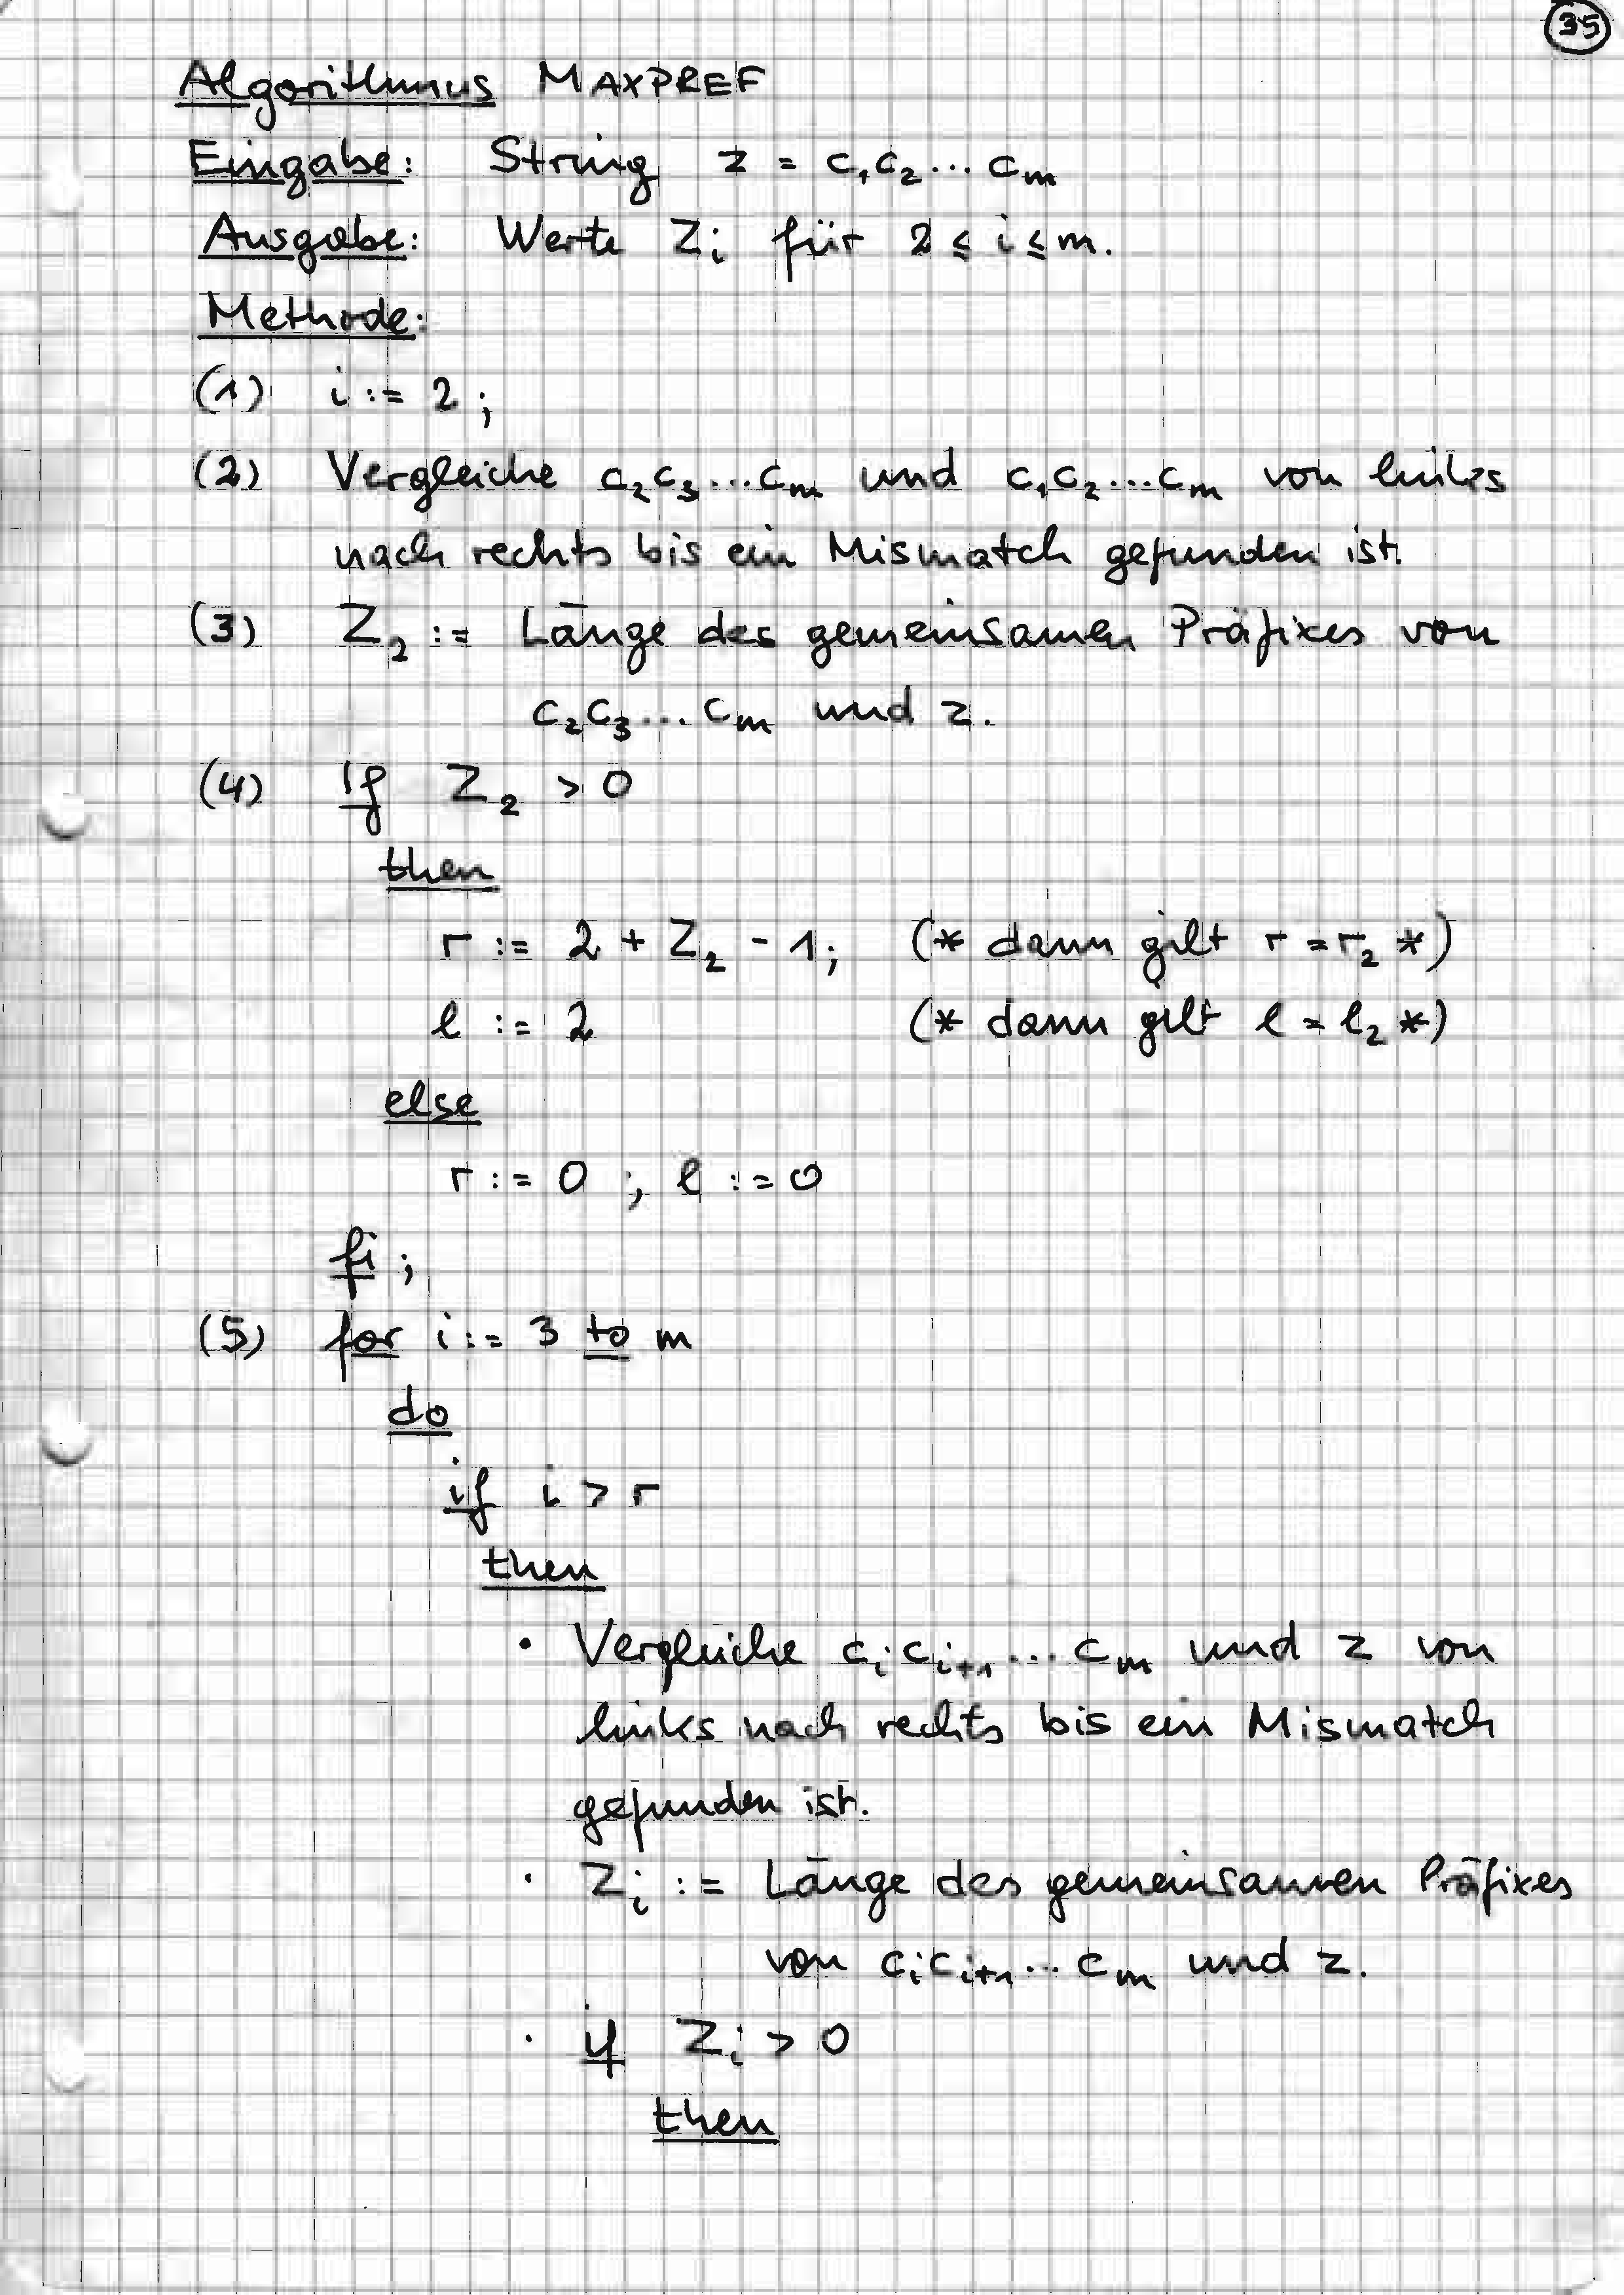 35
Algorithmus MAXPREF
Eingabe: String z = c₁c₂...cₘ
Ausgabe: Werte Zᵢ für 2 ≤ i ≤ m.
Methode:
(1) i := 2;
(2) Vergleiche c₂c₃...cₘ und c₁c₂...cₘ von links
nach rechts bis ein Mismatch gefunden ist.
(3) Z₂ := Länge des gemeinsamen Präfixes von
c₂c₃...cₘ und z.
(4) if Z₂ > 0
then
r := 2 + Z₂ - 1; (* dann gilt r = r₂ *)
l := 2 (* dann gilt l = l₂ *)
else
r := 0 ; l := 0
fi;
(5) for i := 3 to m
do
if i > r
then
• Vergleiche cᵢcᵢ₊₁...cₘ und z von
links nach rechts bis ein Mismatch
gefunden ist.
• Zᵢ := Länge des gemeinsamen Präfixes
von cᵢcᵢ₊₁...cₘ und z.
• if Zᵢ > 0
then